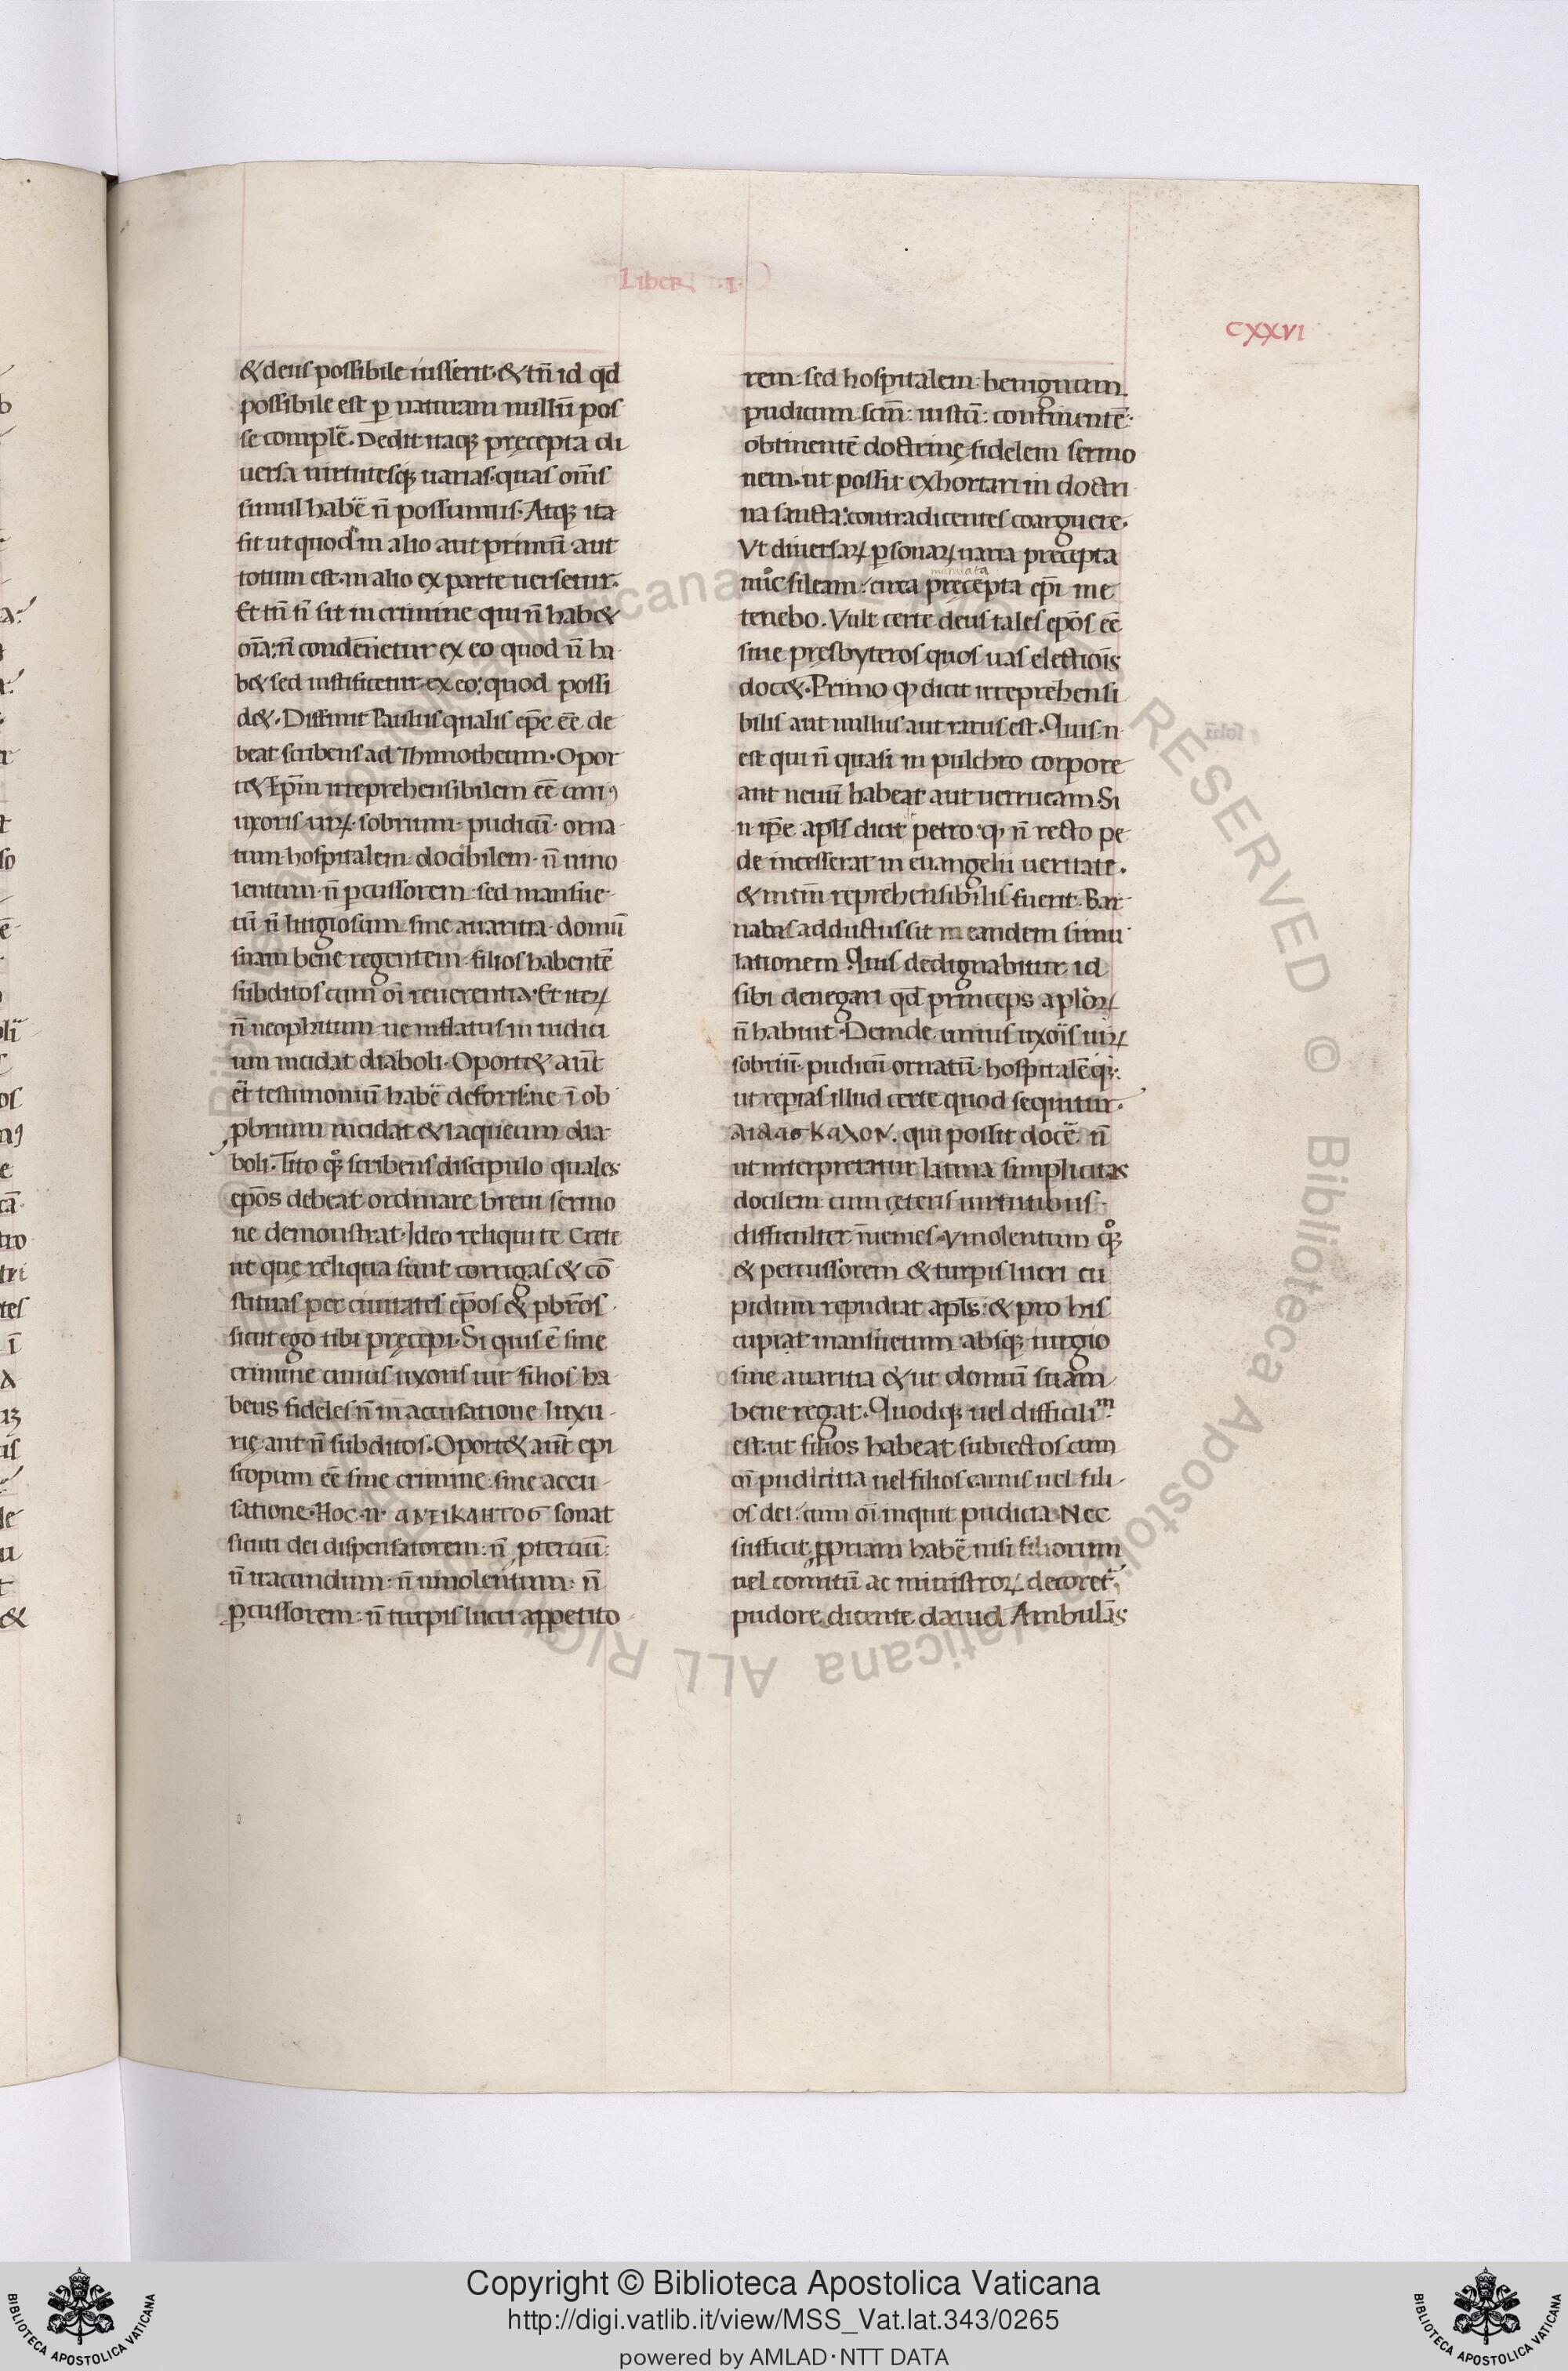 Liber .I.
CXXVI
& deus possibile iusserit. & tn̄ id qd
possibile est ꝑ naturam nullū pos
se complē. Dedit itaqꝫ precepta di
uersa uirtutesqꝫ uarias. quas om̄s
simul habē n̄ possumus. Atqꝫ ita
fit ut quod in alio aut primū aut
totum est. in alio ex parte uersetur.
Et tn̄ n̄ sit in crimine qui n̄ hab&
om̄a: n̄ condēnetur ex eo quod n̄ ha
b& sed iustificetur ex eo: quod possi
d&. Diffinit Paulus qualis ep̄c eē de
beat scribens ad Thimotheum. Opor
t& Ep̄m irreprehensibilem eē uniꝰ
uxoris uirꝝ. sobrium. pudicū. orna
tum. hospitalem. docibilem. n̄ uino
lentum. n̄ ꝑcussorem. sed mansue
tū n̄ litigiosum. sine auaritia. domū
suam bene regentem. filios habentē
subditos cum oī reuerentia. Et iterꝝ
n̄ neophitum. ne inflatus in iudici
um incidat diaboli. Oport& aūt
& testimoniū habē deforis. ne ī ob
ꝓbrium incidat & laqueum dia
boli. Tito qꝫ scribens discipulo quales
ep̄os debeat ordinare breui sermo
ne demonstrat. Ideo reliqui te Crete
ut quę reliqua sunt corrigas & cō
stituas per ciuitates ep̄os & pbr̄os.
sicut ego tibi pręcepi. Si quis ē sine
crimine unius uxoris uir filios ha
bens fideles n̄ in accusatione luxu
rię aut n̄ subditos. Oport& aūt epi
scopum eē sine crimine. sine accu
satione. Hoc .n. ANEIKAHTOC sonat
sicuti dei dispensatorem. n̄ ꝓteruū.
n̄ iracundum. n̄ uinolentum. n̄
ꝑcussorem. n̄ turpis lucri appetito
rem. sed hospitalem. benignum.
pudicum. scm̄. iustū. continentē.
obtinentē doctrinę fidelem sermo
nem. ut possit exhortari in doctri
na sancta: contradicentes coarguere.
Vt diuersarꝝ ꝑsonarꝝ uaria precepta
mandata
nūc sileam: circa pręcepta ep̄i me
tenebo. Vult certe deus tales ep̄os eē
siue presbyteros quos uas electiōis
doc&. Primo qd dicit irreprehensi
bilis aut nullus aut rarus est. Quis .n.
est qui n̄ quasi in pulchro corpore
aut neuū habeat aut uerrucam. Si
.n. ip̄e apl̄s dicit petro. qd n̄ recto pe
de incesserat in euangelii ueritate.
& intm̄ reprehensibilis fuerit. Bar
nabas adductus sit in eandem simu
lationem. Quis dedignabitur id
sibi denegari qd princeps apl̄orꝝ
n̄ habuit. Deinde. unius uxoīs uirꝝ
sobriū. pudicū ornatū. hospitalēqꝫ.
ut repias illud certe quod sequitur.
ΔΙΔΑCΚΑΧΟΝ. qui possit docē. n̄
ut interpretatur latina simplicitas
docilem. cum ceteris uirtutibus.
difficulter īuenies. Vinolentum qꝫ
& percussorem & turpis lucri cu
pidum repudiat apl̄s. & pro his
cupiat mansuetum absqꝫ iurgio
sine auaritia & ut domū suam
bene regat. Quodqꝫ uel difficiliᵐ
est. ut filios habeat subiectos cum
oī pudicitia uel filios carnis uel fili
os dei. cum oī inquit pudicia. Nec
sufficit ꝓpriam habē nisi filiorum
uel comitū ac ministrorꝝ decoret
pudore. dicente dauid Ambulās